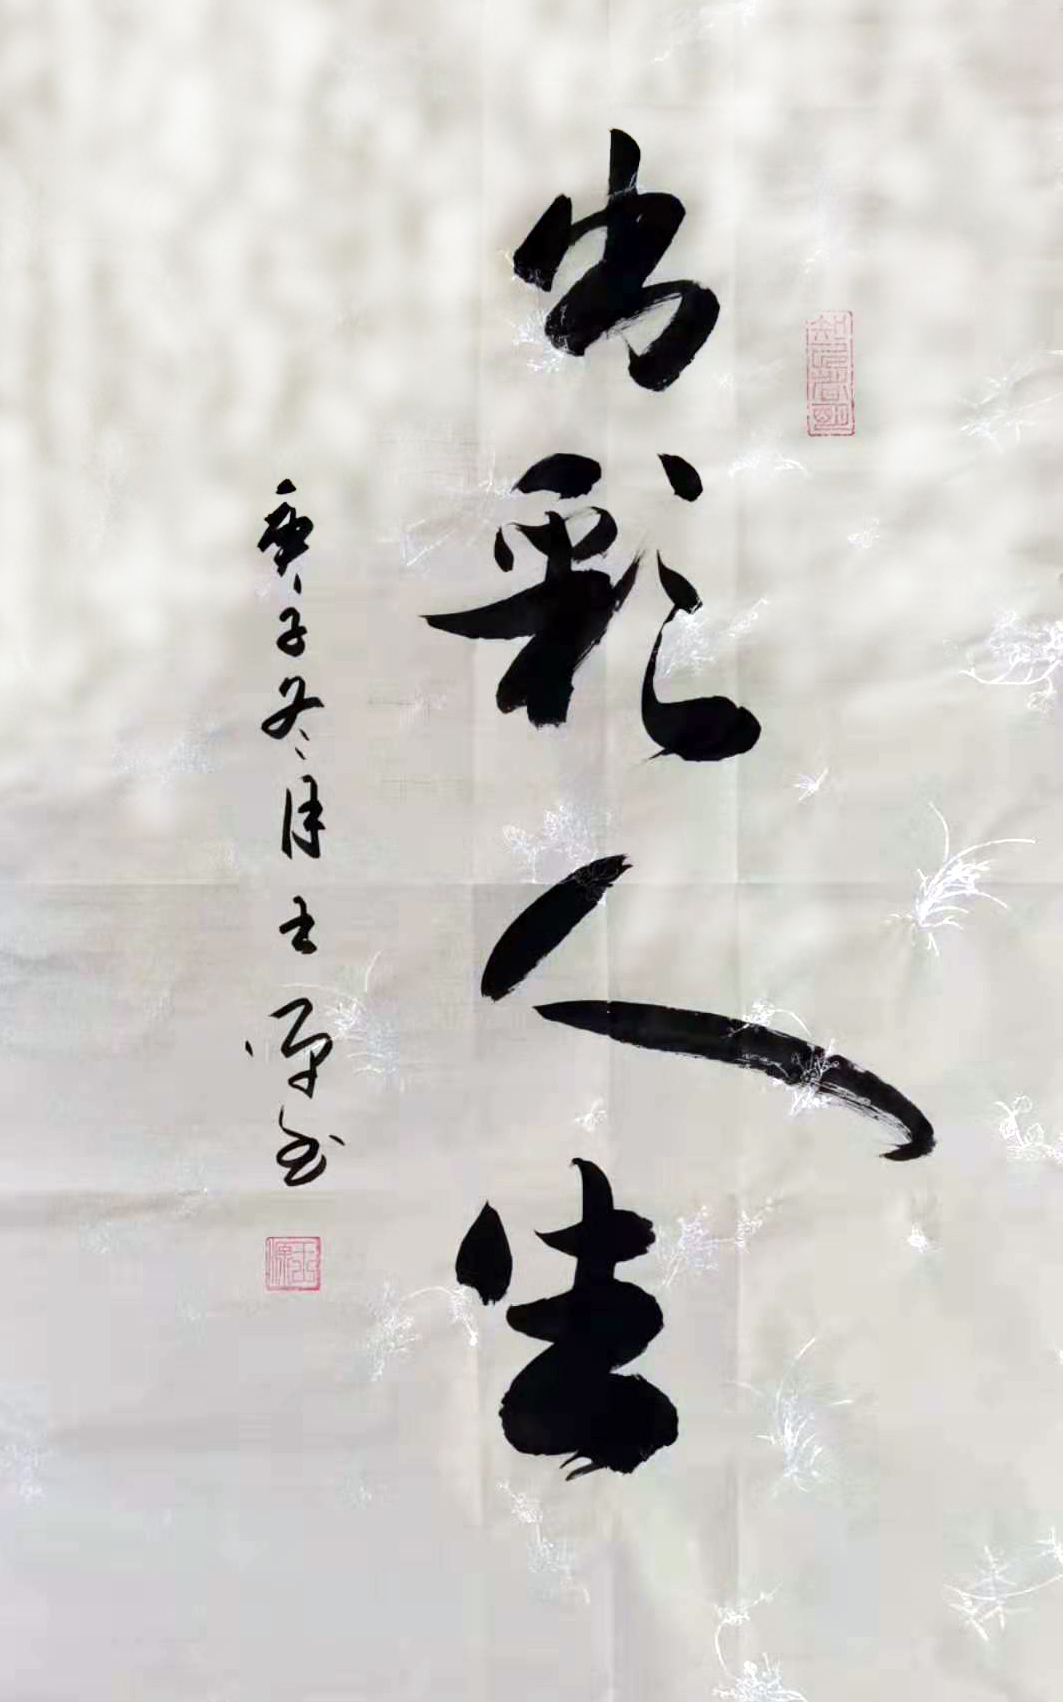 出彩人生
庚子冬月士源书